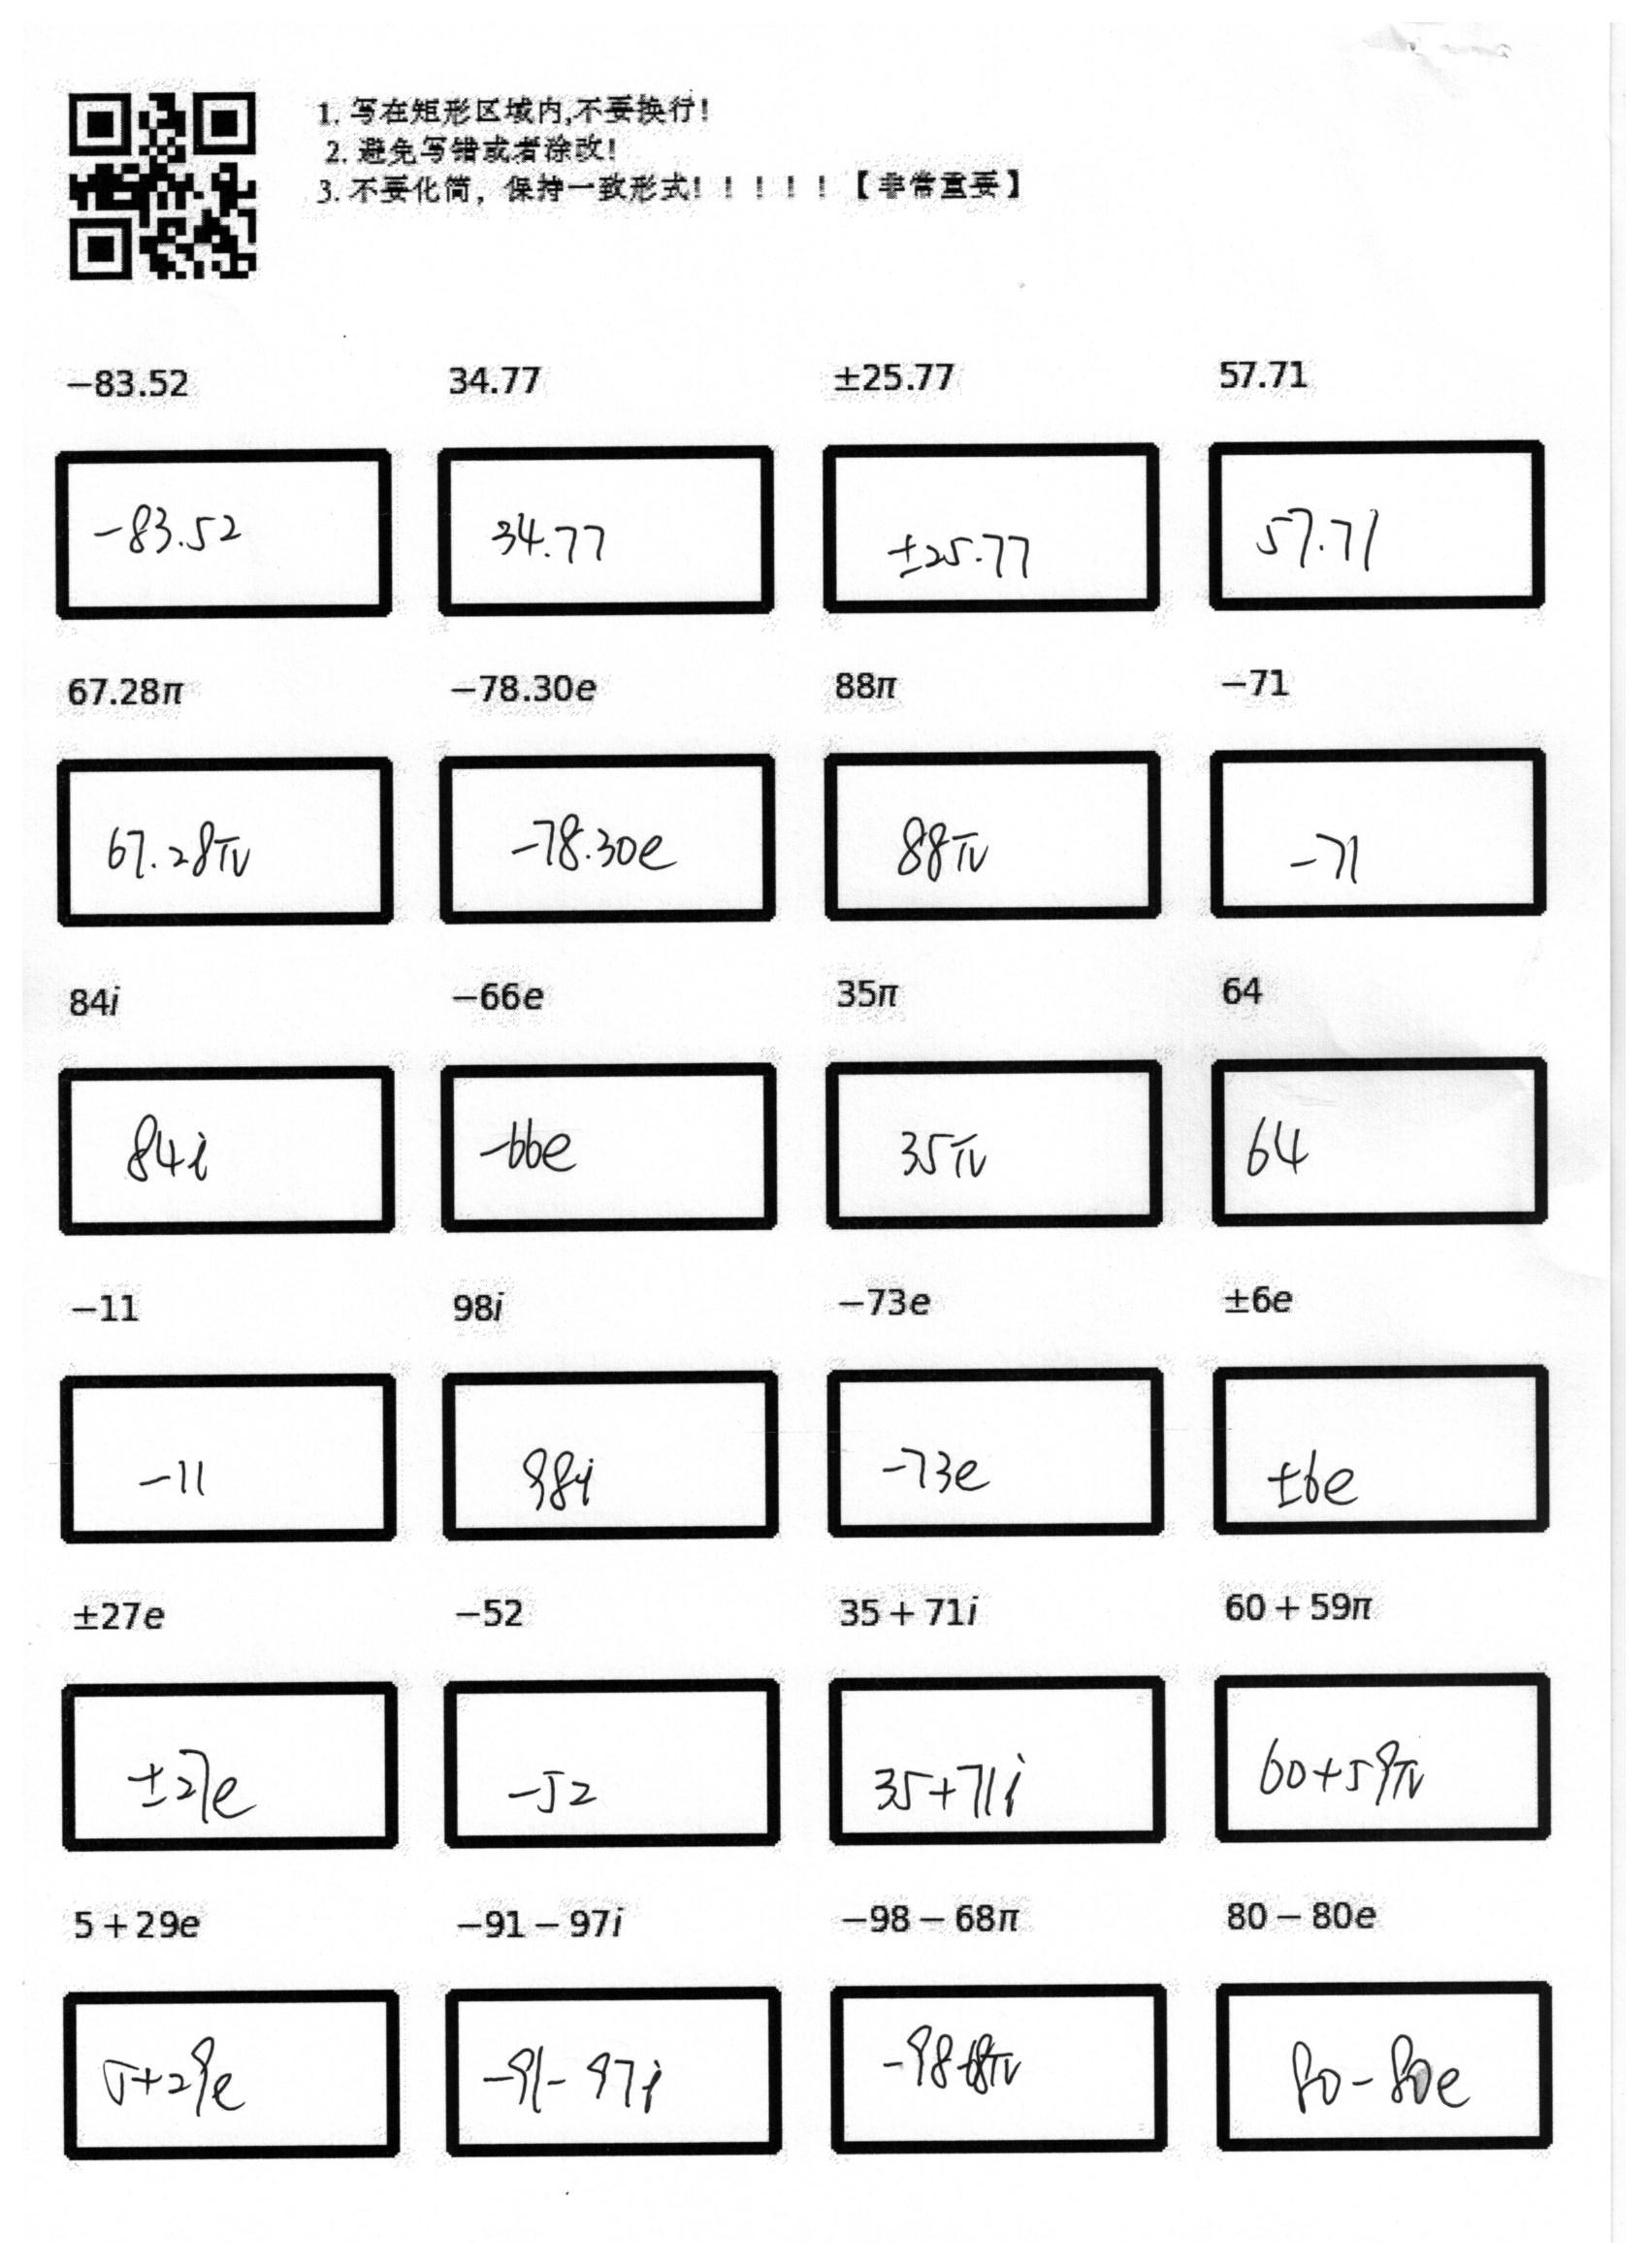 1. 写在矩形区域内,不要换行!
2. 避免写错或者涂改!
3. 不要化简，保持一致形式! ! ! ! !【非常重要】
−83.52 34.77 ±25.77 57.71
-83.52 34.77 ±25.77 57.71
67.28π −78.30e 88π −71
67.28π -78.30e 88π -71
84i −66e 35π 64
84i -66e 35π 64
−11 98i −73e ±6e
-11 98i -73e ±6e
±27e −52 35+71i 60+59π
±27e -52 35+71i 60+59π
5+29e −91−97i −98−68π 80−80e
5+29e -91-97i -98-68π 80-80e